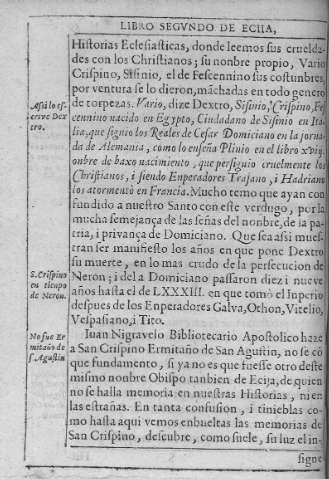 LIBRO SEGVNDO DE ECIJA,
Historias Eclesiasticas, donde leemos sus crueldades
con los Christianos; su nonbre propio, Vario
Crispino, Sisinio, el de Fescennino sus costunbres,
por ventura se lo dieron, mãchadas en todo genero
de torpezas. Vario, dize Dextro, Sisinio, Crispino, Fescennino
nacido en Egypto, Ciudadano de Sisinio en Italia,
que siguio los Reales de Cesar Domiciano en la jornada
de Alemania, como lo enseña Plinio en el libro
onbre de baxo nacimiento, que persiguio cruelmente los
Christianos, i siendo Enperadores Trajano, i Hadriano
los atormentò en Francia. Mucho temo que ayan confundido
a nuestro Santo con este verdugo, por la
mucha semejança de las señas del nonbre, de la patria,
i privança de Domiciano. Que sea assi muestran
ser manifiesto los años en que pone Dextro
su muerte, en lo mas crudo de la persecucion de
Neron; i del a Domiciano passaron diez i nueve
años hasta el de LXXXIII. en que tomò el Inperio
despues de los Enperadores Galva, Othon, Vitelio,
Vespasiano, i Tito.
Iuan Nigravelo Bibliotecario Apostolico haze
a San Crispino Ermitaño de San Agustin, no se cõ
que fundamento, si ya no es que fuesse otro deste
mismo nonbre Obispo tanbien de Ecija, de quien
no se halla memoria en nuestras Historias, ni en
las estrañas. En tanta confusion, i tinieblas como
hasta aqui vemos enbueltas las memorias de
San Crispino, descubre, como suele, su luz el in-
signe
Assi lo escrive
Dextro.
S. Crispino
en tienpo
de Neron.
No fue Ermitaño
de
S. Agustin